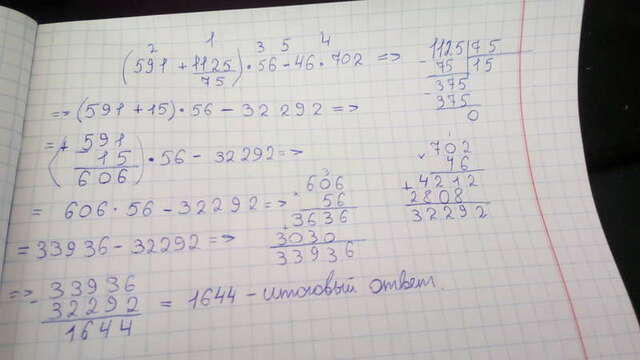 2 1 3 5 4
(591 + 1125/75) · 56 - 46 · 702 =>
1125 | 75
- 75 | 15
375
- 375
0
=> (591 + 15) · 56 - 32 292 =>
= (+ 591
15
606) · 56 - 32292 =>
702
× 46
+ 4212
2808
32292
= 606 · 56 - 32292 =>
606
× 56
+ 3636
3030
33936
= 33936 - 32292 =>
=> - 33936
32292
1644 = 1644 - итоговый ответ.